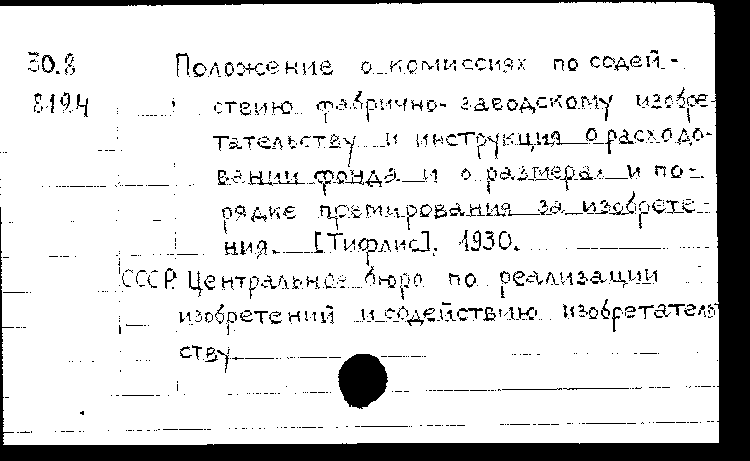 30.8 Положение о комиссиях по содей-
8124 ствию фабрично-заводскому изобре-
тательству и инструкция о расходо-
вании фонда и о размерах и по-
рядке премирования за изобрете-
ния. [Тифлис]. 1930.
СССР. Центральное бюро по реализации
изобретений и содействию изобретатель
ству